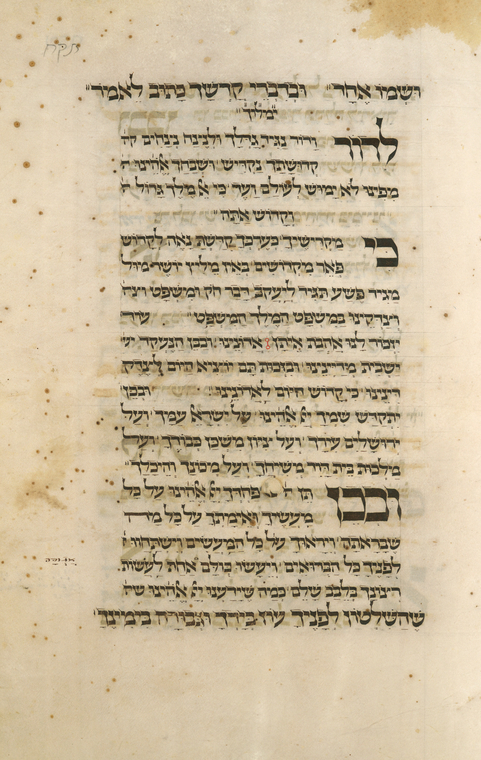 ושמו אחד וּבְדִבְרֵי קָדְשְׁךָ כָּתוּב לֵאמֹר
ימלוך
לדור ודור נגיד גדלך ולנצח נצחים קד
קדושתך נקדיש ושבחך אלהינו מ
מפינו לא ימוש לעולם ועד כי מלך גדול
וקדוש אתה
כי מקדישיך בערכך קדשת נאה לקדוש
פאר מקדושים באין מליץ יושר מול
מגיד פשע תגיד ליעקב דבר חק ומשפט
וצדקינו במשפט המלך המשפט עוד
יזכור לנו אהבת איתן אדונינו ובבן הנעקד
ישבית מדיינינו ובזכות תם יוציא היום לצדק
דינינו כי קדוש היום לאדונינו ובכן
יתקדש שמך אלהינו על ישראל עמך ועל
ירושלים עירך ועל ציון משכן כבודך ועל
מלכות בית דוד משיחך ועל מכונך והיכלך
ובכן תן פחדך אלהינו על כל
מעשיך ואימתך על כל מה
שבראתה וייראוך על כל המעשים וישתחוו
לפניך כל הברואים ויעשו כולם אחת לעשות
רצונך בלבב שלם כמה שידענו אלהינו
שהשלטון לפניך עוז בידך וגבורה בימינך